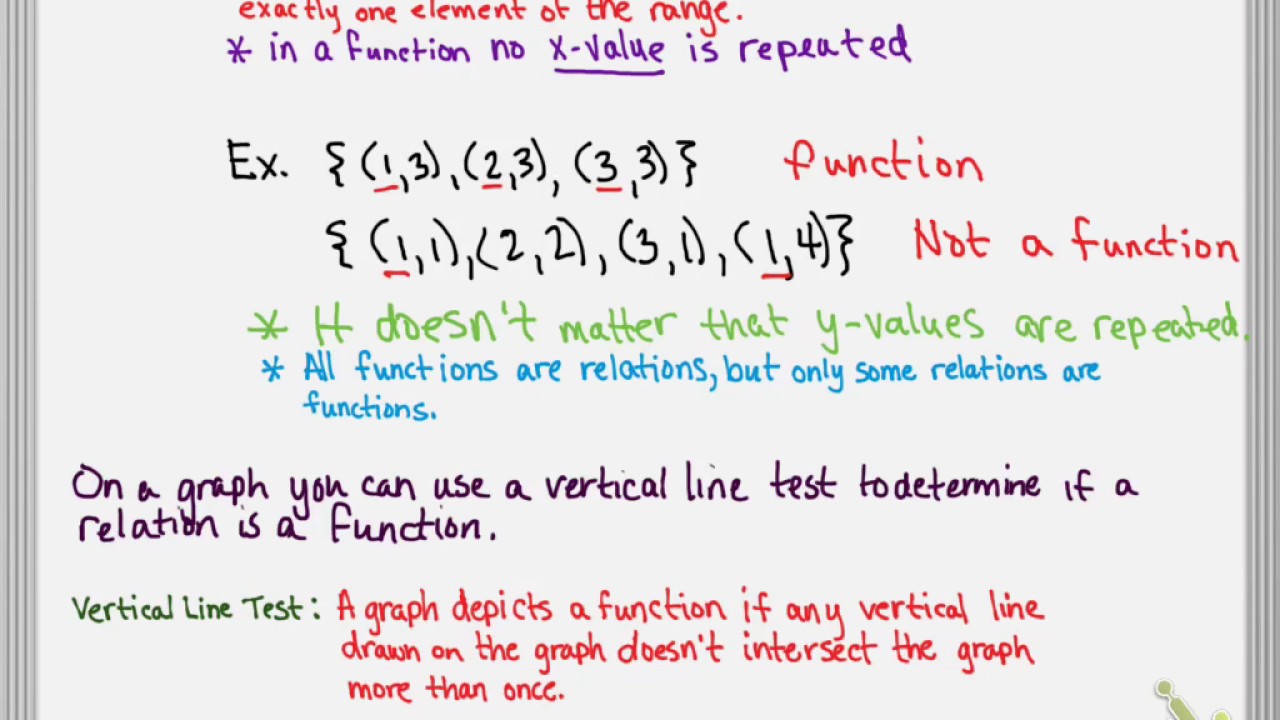 exactly one element of the range.
* in a function no x-value is repeated
Ex. {(1,3),(2,3),(3,3)} function
{(1,1),(2,2),(3,1),(1,4)} Not a function
* It doesn't matter that y-values are repeated.
* All functions are relations, but only some relations are
functions.
On a graph you can use a vertical line test to determine if a
relation is a function.
Vertical Line Test: A graph depicts a function if any vertical line
drawn on the graph doesn't intersect the graph
more than once.